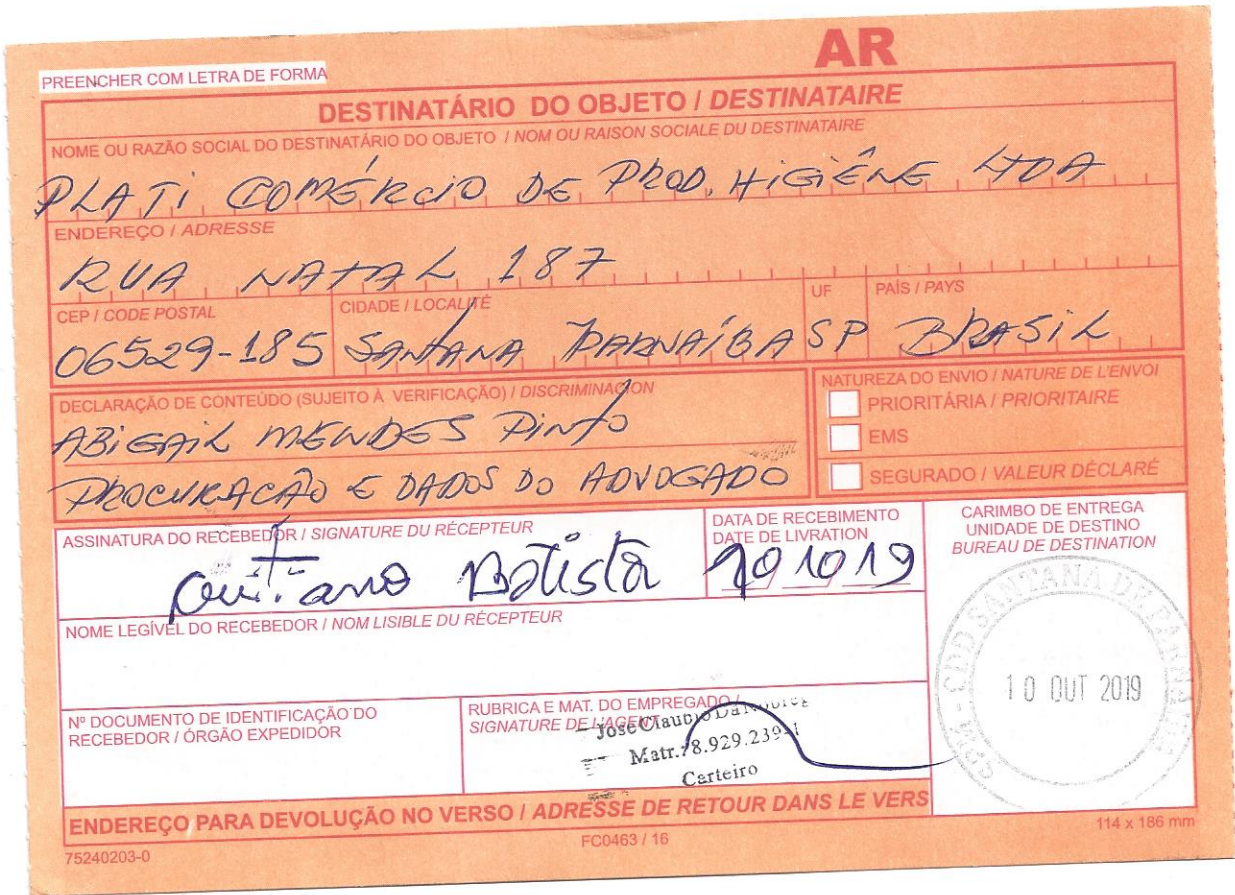 AR
PREENCHER COM LETRA DE FORMA
DESTINATÁRIO DO OBJETO / DESTINATAIRE
NOME OU RAZÃO SOCIAL DO DESTINATÁRIO DO OBJETO / NOM OU RAISON SOCIALE DU DESTINATAIRE
PLATI COMÉRCIO DE PROD. HIGIÊNE LTDA
ENDEREÇO / ADRESSE
RUA NATAL 187
CEP / CODE POSTAL CIDADE / LOCALITÉ UF PAÍS / PAYS
06529-185 SANTANA PARNAÍBA SP BRASIL
DECLARAÇÃO DE CONTEÚDO (SUJEITO À VERIFICAÇÃO) / DISCRIMINACION
ABIGAIL MENDES PINTO
PROCURACÃO E DADOS DO ADVOGADO
NATUREZA DO ENVIO / NATURE DE L'ENVOI
PRIORITÁRIA / PRIORITAIRE
EMS
SEGURADO / VALEUR DÉCLARÉ
ASSINATURA DO RECEBEDOR / SIGNATURE DU RÉCEPTEUR
Batista
DATA DE RECEBIMENTO
DATE DE LIVRATION
10 10 19
CARIMBO DE ENTREGA
UNIDADE DE DESTINO
BUREAU DE DESTINATION
CDD SANTANA DE PARNAIBA
10 OUT 2019
NOME LEGÍVEL DO RECEBEDOR / NOM LISIBLE DU RÉCEPTEUR
Nº DOCUMENTO DE IDENTIFICAÇÃO DO
RECEBEDOR / ÓRGÃO EXPEDIDOR
RUBRICA E MAT. DO EMPREGADO /
SIGNATURE DE L'AGENT
José Claubio Da
Matr.: 8.929.239-1
Carteiro
ENDEREÇO PARA DEVOLUÇÃO NO VERSO / ADRESSE DE RETOUR DANS LE VERS
75240203-0 FC0463 / 16 114 x 186 mm